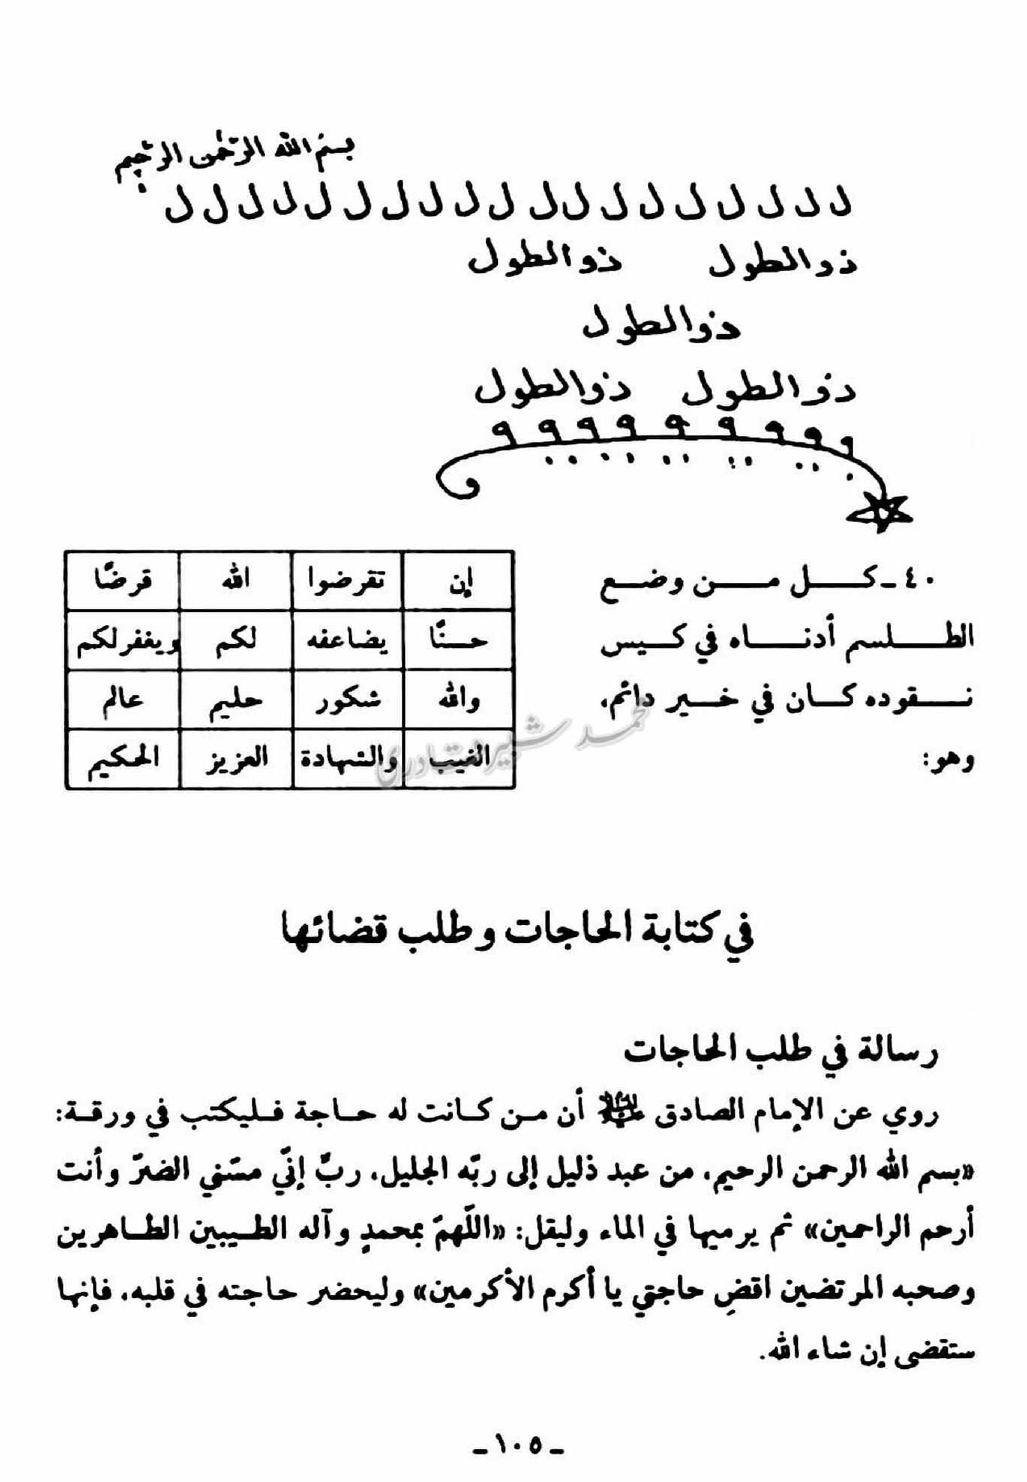 بسم الله الرحمن الرحيم
ل ل ل ل ل ل ل ل ل ل ل ل ل ل ل ل ل ل ل
ذو الطول ذو الطول
ذو الطول
ذو الطول ذو الطول
٩ ٩ ٩ ٩ ٩ ٩ ٩ ٩
٤٠ ـ كل من وضع
الطلسم أدناه في كيس
نقوده كان في خير دائم،
وهو:
إن تقرضوا الله قرضًا
حسنًا يضاعفه لكم ويغفر لكم
والله شكور حليم عالم
الغيب والشهادة العزيز الحكيم
محمد شبير قادري
في كتابة الحاجات وطلب قضائها
رسالة في طلب الحاجات
روي عن الإمام الصادق عليه السلام أن من كانت له حاجة فليكتب في ورقة:
«بسم الله الرحمن الرحيم، من عبد ذليل إلى ربّه الجليل، ربِّ إنّي مسّني الضرّ وأنت
أرحم الراحمين» ثم يرميها في الماء وليقل: «اللّهمّ بمحمدٍ وآله الطيبين الطاهرين
وصحبه المرتضين اقضِ حاجتي يا أكرم الأكرمين» وليحضر حاجته في قلبه، فإنها
ستقضى إن شاء الله.
ـ ١٠٥ ـ